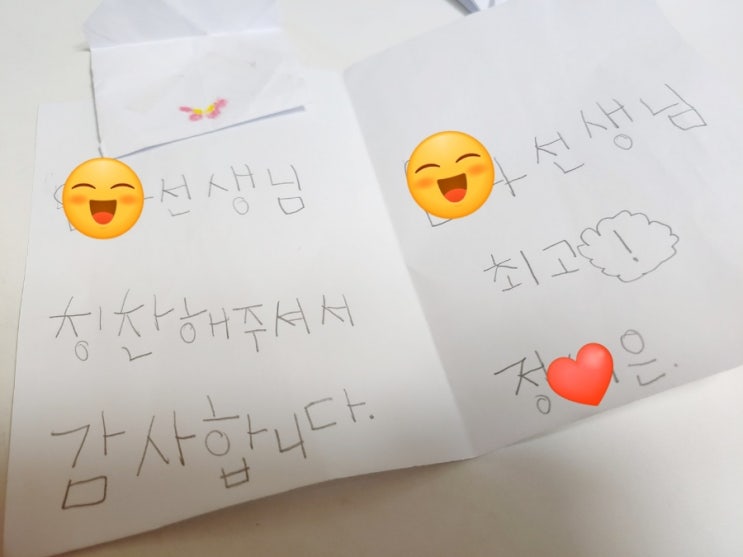 선생님
칭찬해주셔서
감사합니다.
선생님
최고!